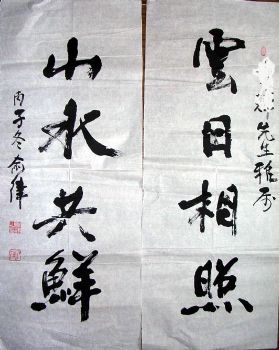 雲日相照
先生雅正
山水共鮮
丙子冬俞律